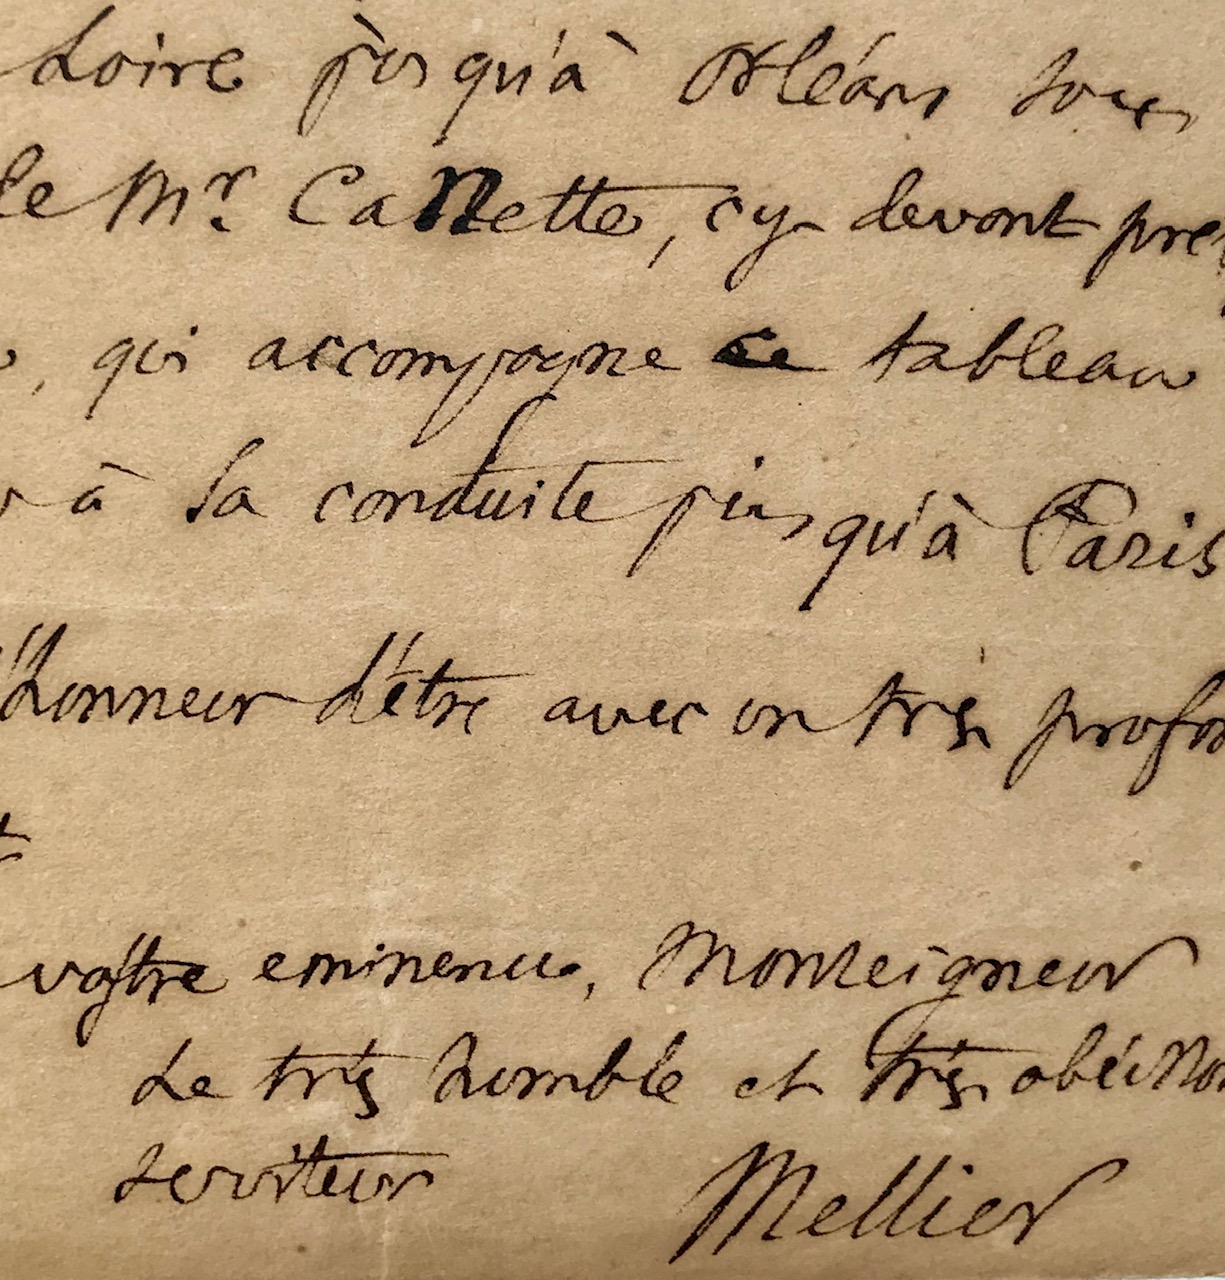 Loire jusqu'à Orléans sous
le Mr. Canette, cy devont pre
, qui accompagne ce tableau
à sa conduite jusqu'à Paris
l'honneur d'être avec un très profon
t
vostre eminence, Monseigneur
Le très humble et très obéissan
serviteur Mellier